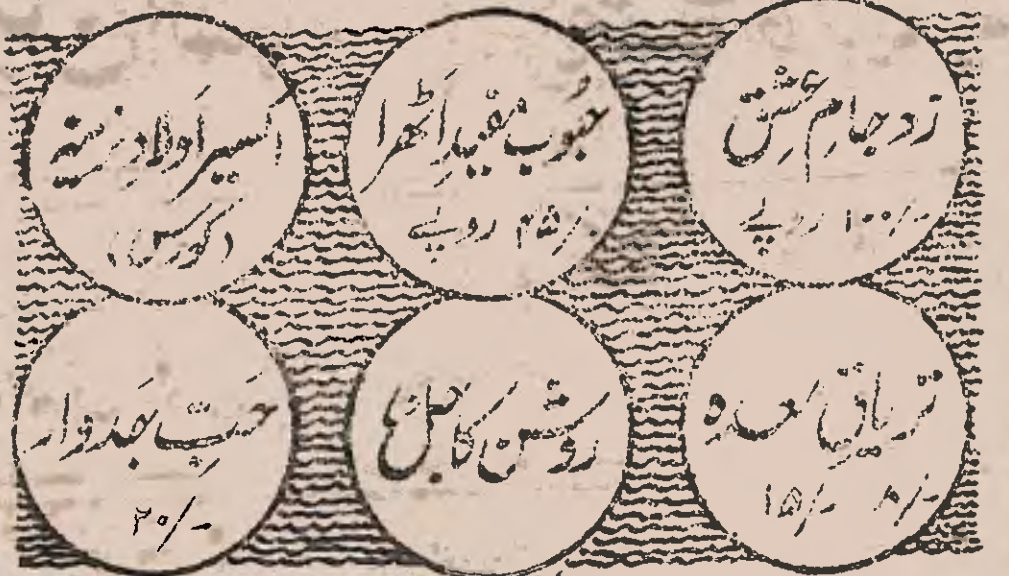 زد جام عشق
۱۰۰/- روپے
حبوب مفید اٹھرا
روپے
اکسیر اولاد نرینہ
(کورس)
تریاق معدہ
۸/- ۱۵/-
روشن کاجل
حب جدوار
۲۰/-